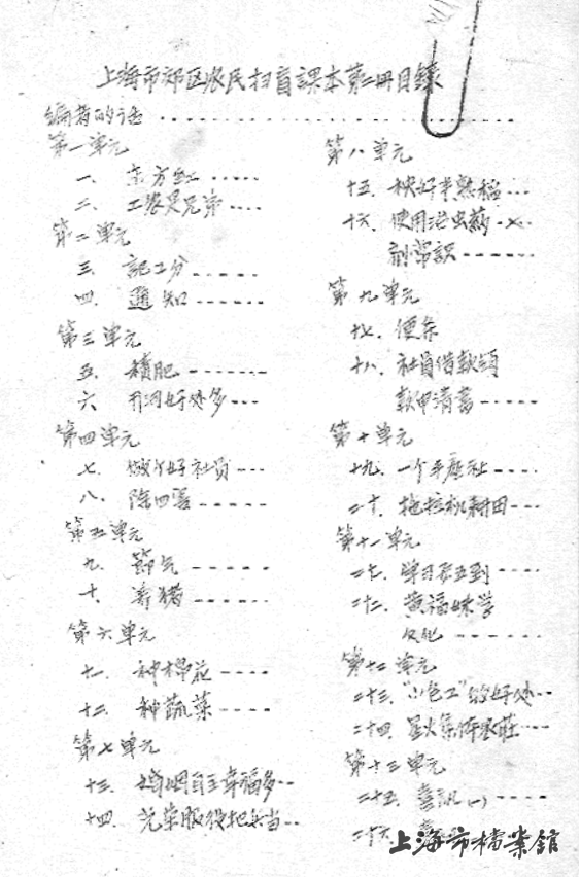 上海市郊区农民扫盲课本第二册目录
编者的话
第一单元
一、东方红
二、工农是兄弟
第二单元
三、記工分
四、通知
第三单元
五、積肥
六、开河好处多
第四单元
七、做个好社员
八、除四害
第五单元
九、節气
十、养猪
第六单元
十一、种棉花
十二、种蔬菜
第七单元
十三、婚姻自主幸福多
十四、光荣服役把兵当
第八单元
十五、秧好半熟稻
十六、使用治虫葯
剂常識
第九单元
十七、便条
十八、社員借款領
款申請書
第十单元
十九、一个手
二十、拖拉机耕田
第十一单元
二十一、学习五到
二十二、黄福妹学
文化
第十二单元
二十三、"小包工"的好处
二十四、星火集体农莊
第十三单元
二十五、喜訊(一)
二十六、喜
上海市檔案館